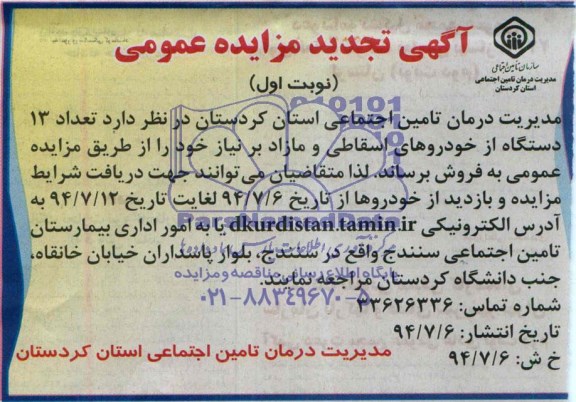 آگهی تجدید مزایده عمومی
سازمان تامین اجتماعی
مدیریت درمان تامین اجتماعی
استان کردستان
(نوبت اول)
مدیریت درمان تامین اجتماعی استان کردستان در نظر دارد تعداد ۱۳
دستگاه از خودروهای اسقاطی و مازاد بر نیاز خود را از طریق مزایده
عمومی به فروش برساند. لذا متقاضیان می توانند جهت دریافت شرایط
مزایده و بازدید از خودروها از تاریخ ۹۴/۷/۶ لغایت تاریخ ۹۴/۷/۱۲ به
آدرس الکترونیکی dkurdistan.tamin.ir یا به امور اداری بیمارستان
تامین اجتماعی سنندج واقع در سنندج، بلوار پاسداران خیابان خانقاه،
جنب دانشگاه کردستان مراجعه نمایند.
شماره تماس: ۳۳۶۲۶۳۳۶
تاریخ انتشار: ۹۴/۷/۶
خ ش: ۹۴/۷/۶
مدیریت درمان تامین اجتماعی استان کردستان
ParsNamadData
پایگاه اطلاع رسانی مناقصه و مزایده
۰۲۱-۸۸۳۴۹۶۷۰-۵